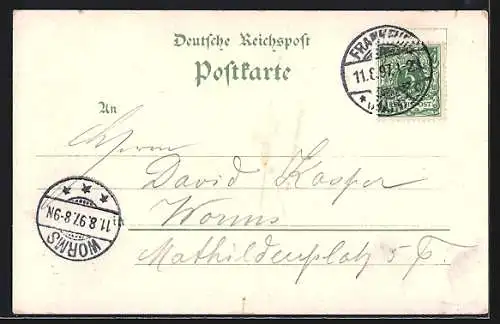 Deutsche Reichspost
Postkarte
An
Herrn
David Kasper
Worms
Mathildenplatz 5
FRANKFURT
11.8.97
WORMS
11.8.97.8-9N
5